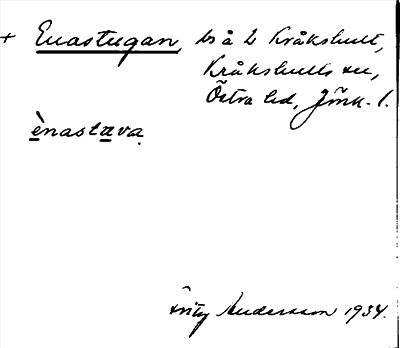 + Enastugan, ls å L Kråkshult,
Kråkshults sn,
Östra hd, Jönk. l.
ènastava
Fritz Andersson 1934.